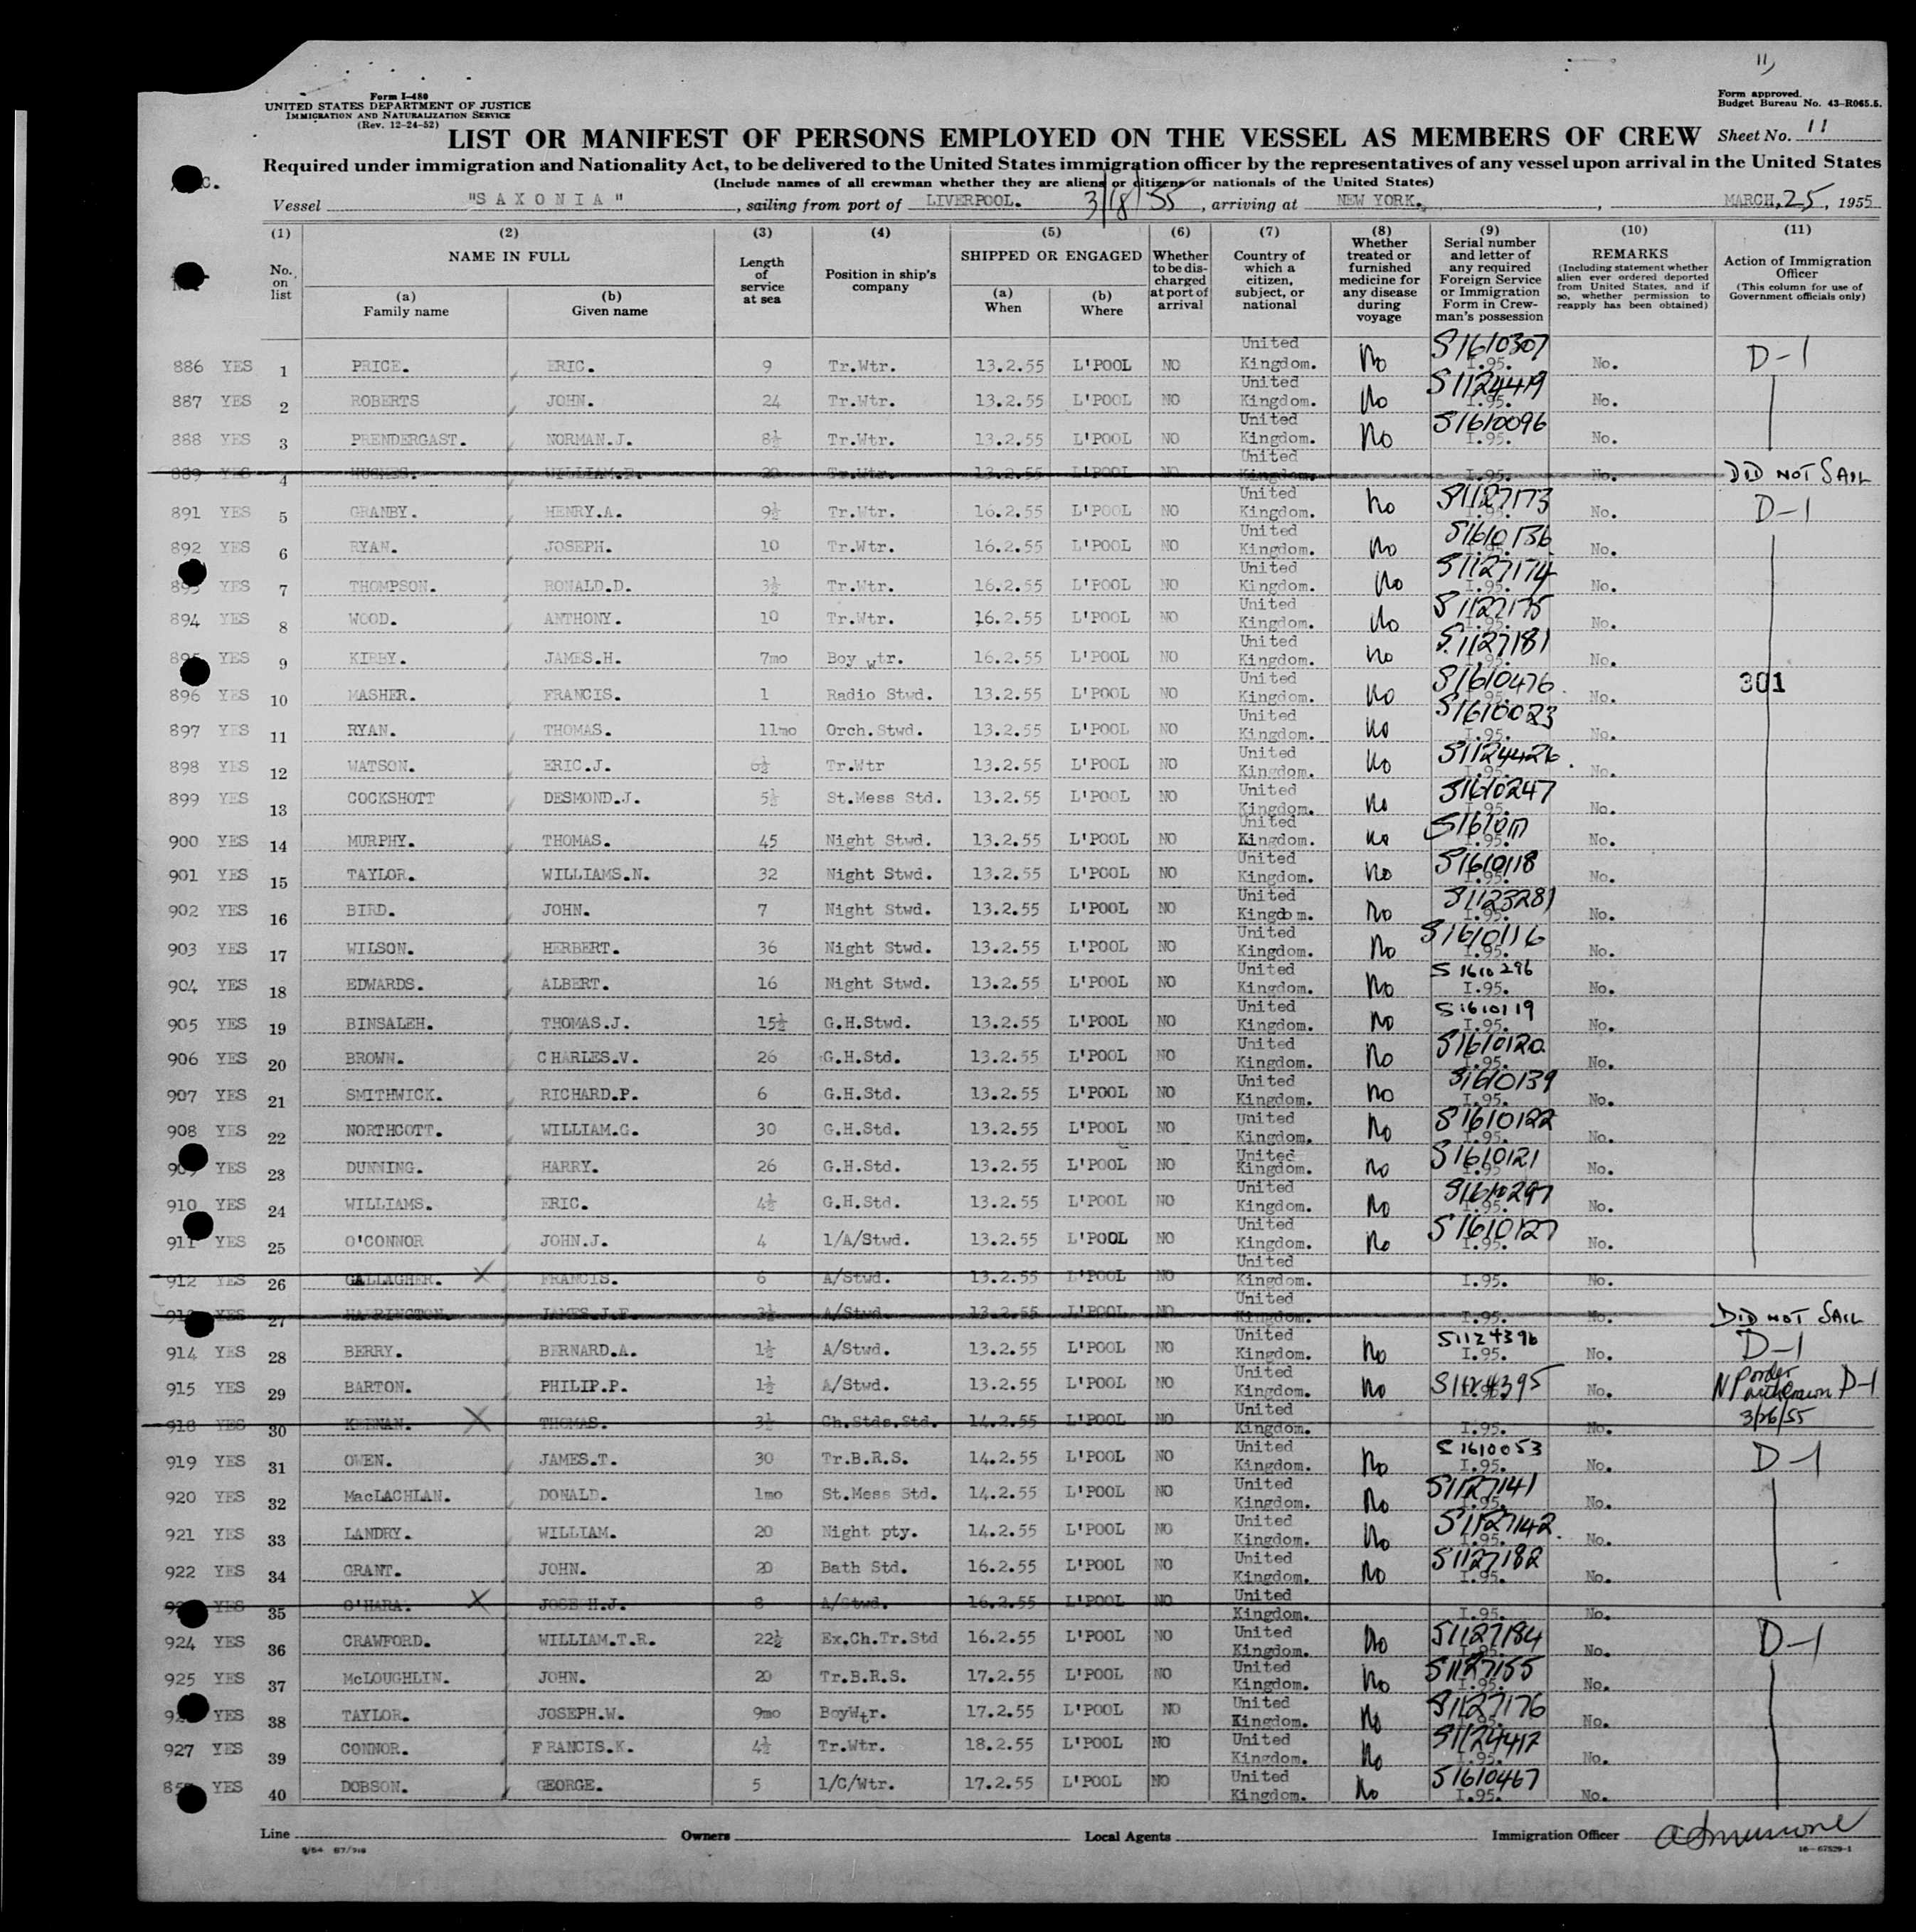 11
Form I-480
UNITED STATES DEPARTMENT OF JUSTICE
IMMIGRATION AND NATURALIZATION SERVICE
(Rev. 12-24-52)
Form approved.
Budget Bureau No. 43-R065.5.
LIST OR MANIFEST OF PERSONS EMPLOYED ON THE VESSEL AS MEMBERS OF CREW Sheet No. 11
Required under immigration and Nationality Act, to be delivered to the United States immigration officer by the representatives of any vessel upon arrival in the United States
(Include names of all crewman whether they are aliens or citizens or nationals of the United States)
Vessel "SAXONIA", sailing from port of LIVERPOOL. 3/18/55, arriving at NEW YORK., MARCH, 25, 1955
(1) (2) (3) (4) (5) (6) (7) (8) (9) (10) (11)
No. on list NAME IN FULL (a) Family name (b) Given name Length of service at sea Position in ship's company SHIPPED OR ENGAGED (a) When (b) Where Whether to be discharged at port of arrival Country of which a citizen, subject, or national Whether treated or furnished medicine for any disease during voyage Serial number and letter of any required Foreign Service or Immigration Form in Crewman's possession REMARKS (Including statement whether alien ever ordered deported from United States, and if so, whether permission to reapply has been obtained) Action of Immigration Officer (This column for use of Government officials only)
886 YES 1 PRICE. ERIC. 9 Tr.Wtr. 13.2.55 L'POOL NO United Kingdom. No S1610307 I.95. No. D-1
887 YES 2 ROBERTS JOHN. 24 Tr.Wtr. 13.2.55 L'POOL NO United Kingdom. No S1124419 I.95. No.
888 YES 3 PRENDERGAST. NORMAN.J. 8½ Tr.Wtr. 13.2.55 L'POOL NO United Kingdom. No S1610096 I.95. No.
889 YES 4 HUGHES. WILLIAM.R. 20 Tr.Wtr. 13.2.55 L'POOL NO United Kingdom. I.95. No. DID NOT SAIL
891 YES 5 GRANBY. HENRY.A. 9½ Tr.Wtr. 16.2.55 L'POOL NO United Kingdom. No S1127173 I.95. No. D-1
892 YES 6 RYAN. JOSEPH. 10 Tr.Wtr. 16.2.55 L'POOL NO United Kingdom. No S1610136 I.95. No.
YES 7 THOMPSON. RONALD.D. 3½ Tr.Wtr. 16.2.55 L'POOL NO United Kingdom. No S1127174 I.95. No.
894 YES 8 WOOD. ANTHONY. 10 Tr.Wtr. 16.2.55 L'POOL NO United Kingdom. No S1127175 I.95. No.
YES 9 KIRBY. JAMES.H. 7mo Boy wtr. 16.2.55 L'POOL NO United Kingdom. No S1127181 I.95. No.
896 YES 10 MASHER. FRANCIS. 1 Radio Stwd. 13.2.55 L'POOL NO United Kingdom. No S1610476 I.95. No. 301
897 YES 11 RYAN. THOMAS. 11mo Orch.Stwd. 13.2.55 L'POOL NO United Kingdom. No S1610023 I.95. No.
898 YES 12 WATSON. ERIC.J. 6½ Tr.Wtr 13.2.55 L'POOL NO United Kingdom. No S1124426 I.95. No.
899 YES 13 COCKSHOTT DESMOND.J. 5½ St.Mess Std. 13.2.55 L'POOL NO United Kingdom. No S1610247 I.95. No.
900 YES 14 MURPHY. THOMAS. 45 Night Stwd. 13.2.55 L'POOL NO United Kingdom. No I.95. No.
901 YES 15 TAYLOR. WILLIAMS.N. 32 Night Stwd. 13.2.55 L'POOL NO United Kingdom. No S1610118 I.95. No.
902 YES 16 BIRD. JOHN. 7 Night Stwd. 13.2.55 L'POOL NO United Kingdom. No S1123281 I.95. No.
903 YES 17 WILSON. HERBERT. 36 Night Stwd. 13.2.55 L'POOL NO United Kingdom. No S1610116 I.95. No.
904 YES 18 EDWARDS. ALBERT. 16 Night Stwd. 13.2.55 L'POOL NO United Kingdom. No S1610296 I.95. No.
905 YES 19 BINSALEH. THOMAS.J. 15½ G.H.Stwd. 13.2.55 L'POOL NO United Kingdom. No S1610119 I.95. No.
906 YES 20 BROWN. CHARLES.V. 26 G.H.Std. 13.2.55 L'POOL NO United Kingdom. No S1610120 I.95. No.
907 YES 21 SMITHWICK. RICHARD.P. 6 G.H.Std. 13.2.55 L'POOL NO United Kingdom. No S1610139 I.95. No.
908 YES 22 NORTHCOTT. WILLIAM.G. 30 G.H.Std. 13.2.55 L'POOL NO United Kingdom. No S1610122 I.95. No.
YES 23 DUNNING. HARRY. 26 G.H.Std. 13.2.55 L'POOL NO United Kingdom. No S1610121 I.95 No.
910 YES 24 WILLIAMS. ERIC. 4½ G.H.Std. 13.2.55 L'POOL NO United Kingdom. No S1610297 I.95. No.
911 YES 25 O'CONNOR JOHN.J. 4 1/A/Stwd. 13.2.55 L'POOL NO United Kingdom. No S1610127 I.95. No.
912 YES 26 GALLAGHER. X FRANCIS. 6 A/Stwd. 13.2.55 L'POOL NO United Kingdom. I.95. No.
YES 27 HARRINGTON. JAMES.J.F. 3½ A/Stwd. 13.2.55 L'POOL NO United Kingdom. I.95. No. DID NOT SAIL
914 YES 28 BERRY. BERNARD.A. 1½ A/Stwd. 13.2.55 L'POOL NO United Kingdom. No S1124396 I.95. No. D-1
915 YES 29 BARTON. PHILIP.P. 1½ A/Stwd. 13.2.55 L'POOL NO United Kingdom. No S1124395 I.95. No. NP order withdrawn D-1
918 YES 30 KEENAN. X THOMAS. 3½ Ch.Stds.Std. 14.2.55 L'POOL NO United Kingdom. I.95. No. 3/26/55
919 YES 31 OWEN. JAMES.T. 30 Tr.B.R.S. 14.2.55 L'POOL NO United Kingdom. No S1610053 I.95. No. D-1
920 YES 32 MacLACHLAN. DONALD. 1mo St.Mess Std. 14.2.55 L'POOL NO United Kingdom. No S1127141 I.95. No.
921 YES 33 LANDRY. WILLIAM. 20 Night pty. 14.2.55 L'POOL NO United Kingdom. No S1127142 I.95. No.
922 YES 34 GRANT. JOHN. 20 Bath Std. 16.2.55 L'POOL NO United Kingdom. No S1127182 I.95. No.
YES 35 O'HARA. X JOSEPH.J. 8 A/Stwd. 16.2.55 L'POOL NO United Kingdom. I.95. No.
924 YES 36 CRAWFORD. WILLIAM.T.R. 22½ Ex.Ch.Tr.Std 16.2.55 L'POOL NO United Kingdom. No S1127184 I.95. No. D-1
925 YES 37 McLOUGHLIN. JOHN. 20 Tr.B.R.S. 17.2.55 L'POOL NO United Kingdom. No S1127155 I.95. No.
YES 38 TAYLOR. JOSEPH.W. 9mo BoyWtr. 17.2.55 L'POOL NO United Kingdom. No S1127176 I.95. No.
927 YES 39 CONNOR. FRANCIS.K. 4½ Tr.Wtr. 18.2.55 L'POOL NO United Kingdom. No S1124417 I.95. No.
YES 40 DOBSON. GEORGE. 5 1/C/Wtr. 17.2.55 L'POOL NO United Kingdom. No S1610467 I.95. No.
Line Owners Local Agents Immigration Officer
16-67529-1